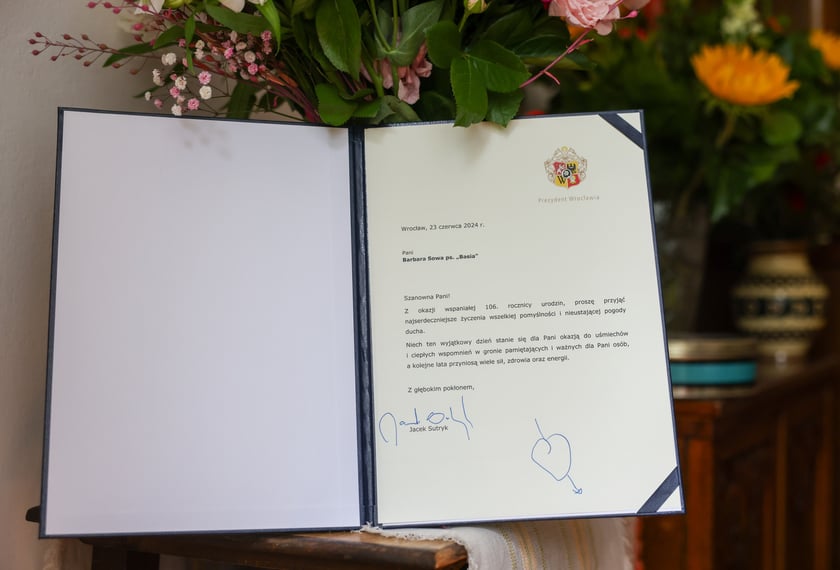 Prezydent Wrocławia
Wrocław, 23 czerwca 2024 r.
Pani
Barbara Sowa ps. „Basia”
Szanowna Pani!
Z okazji wspaniałej 106. rocznicy urodzin, proszę przyjąć
najserdeczniejsze życzenia wszelkiej pomyślności i nieustającej pogody
ducha.
Niech ten wyjątkowy dzień stanie się dla Pani okazją do uśmiechów
i ciepłych wspomnień w gronie pamiętających i ważnych dla Pani osób,
a kolejne lata przyniosą wiele sił, zdrowia oraz energii.
Z głębokim pokłonem,
Jacek Sutryk